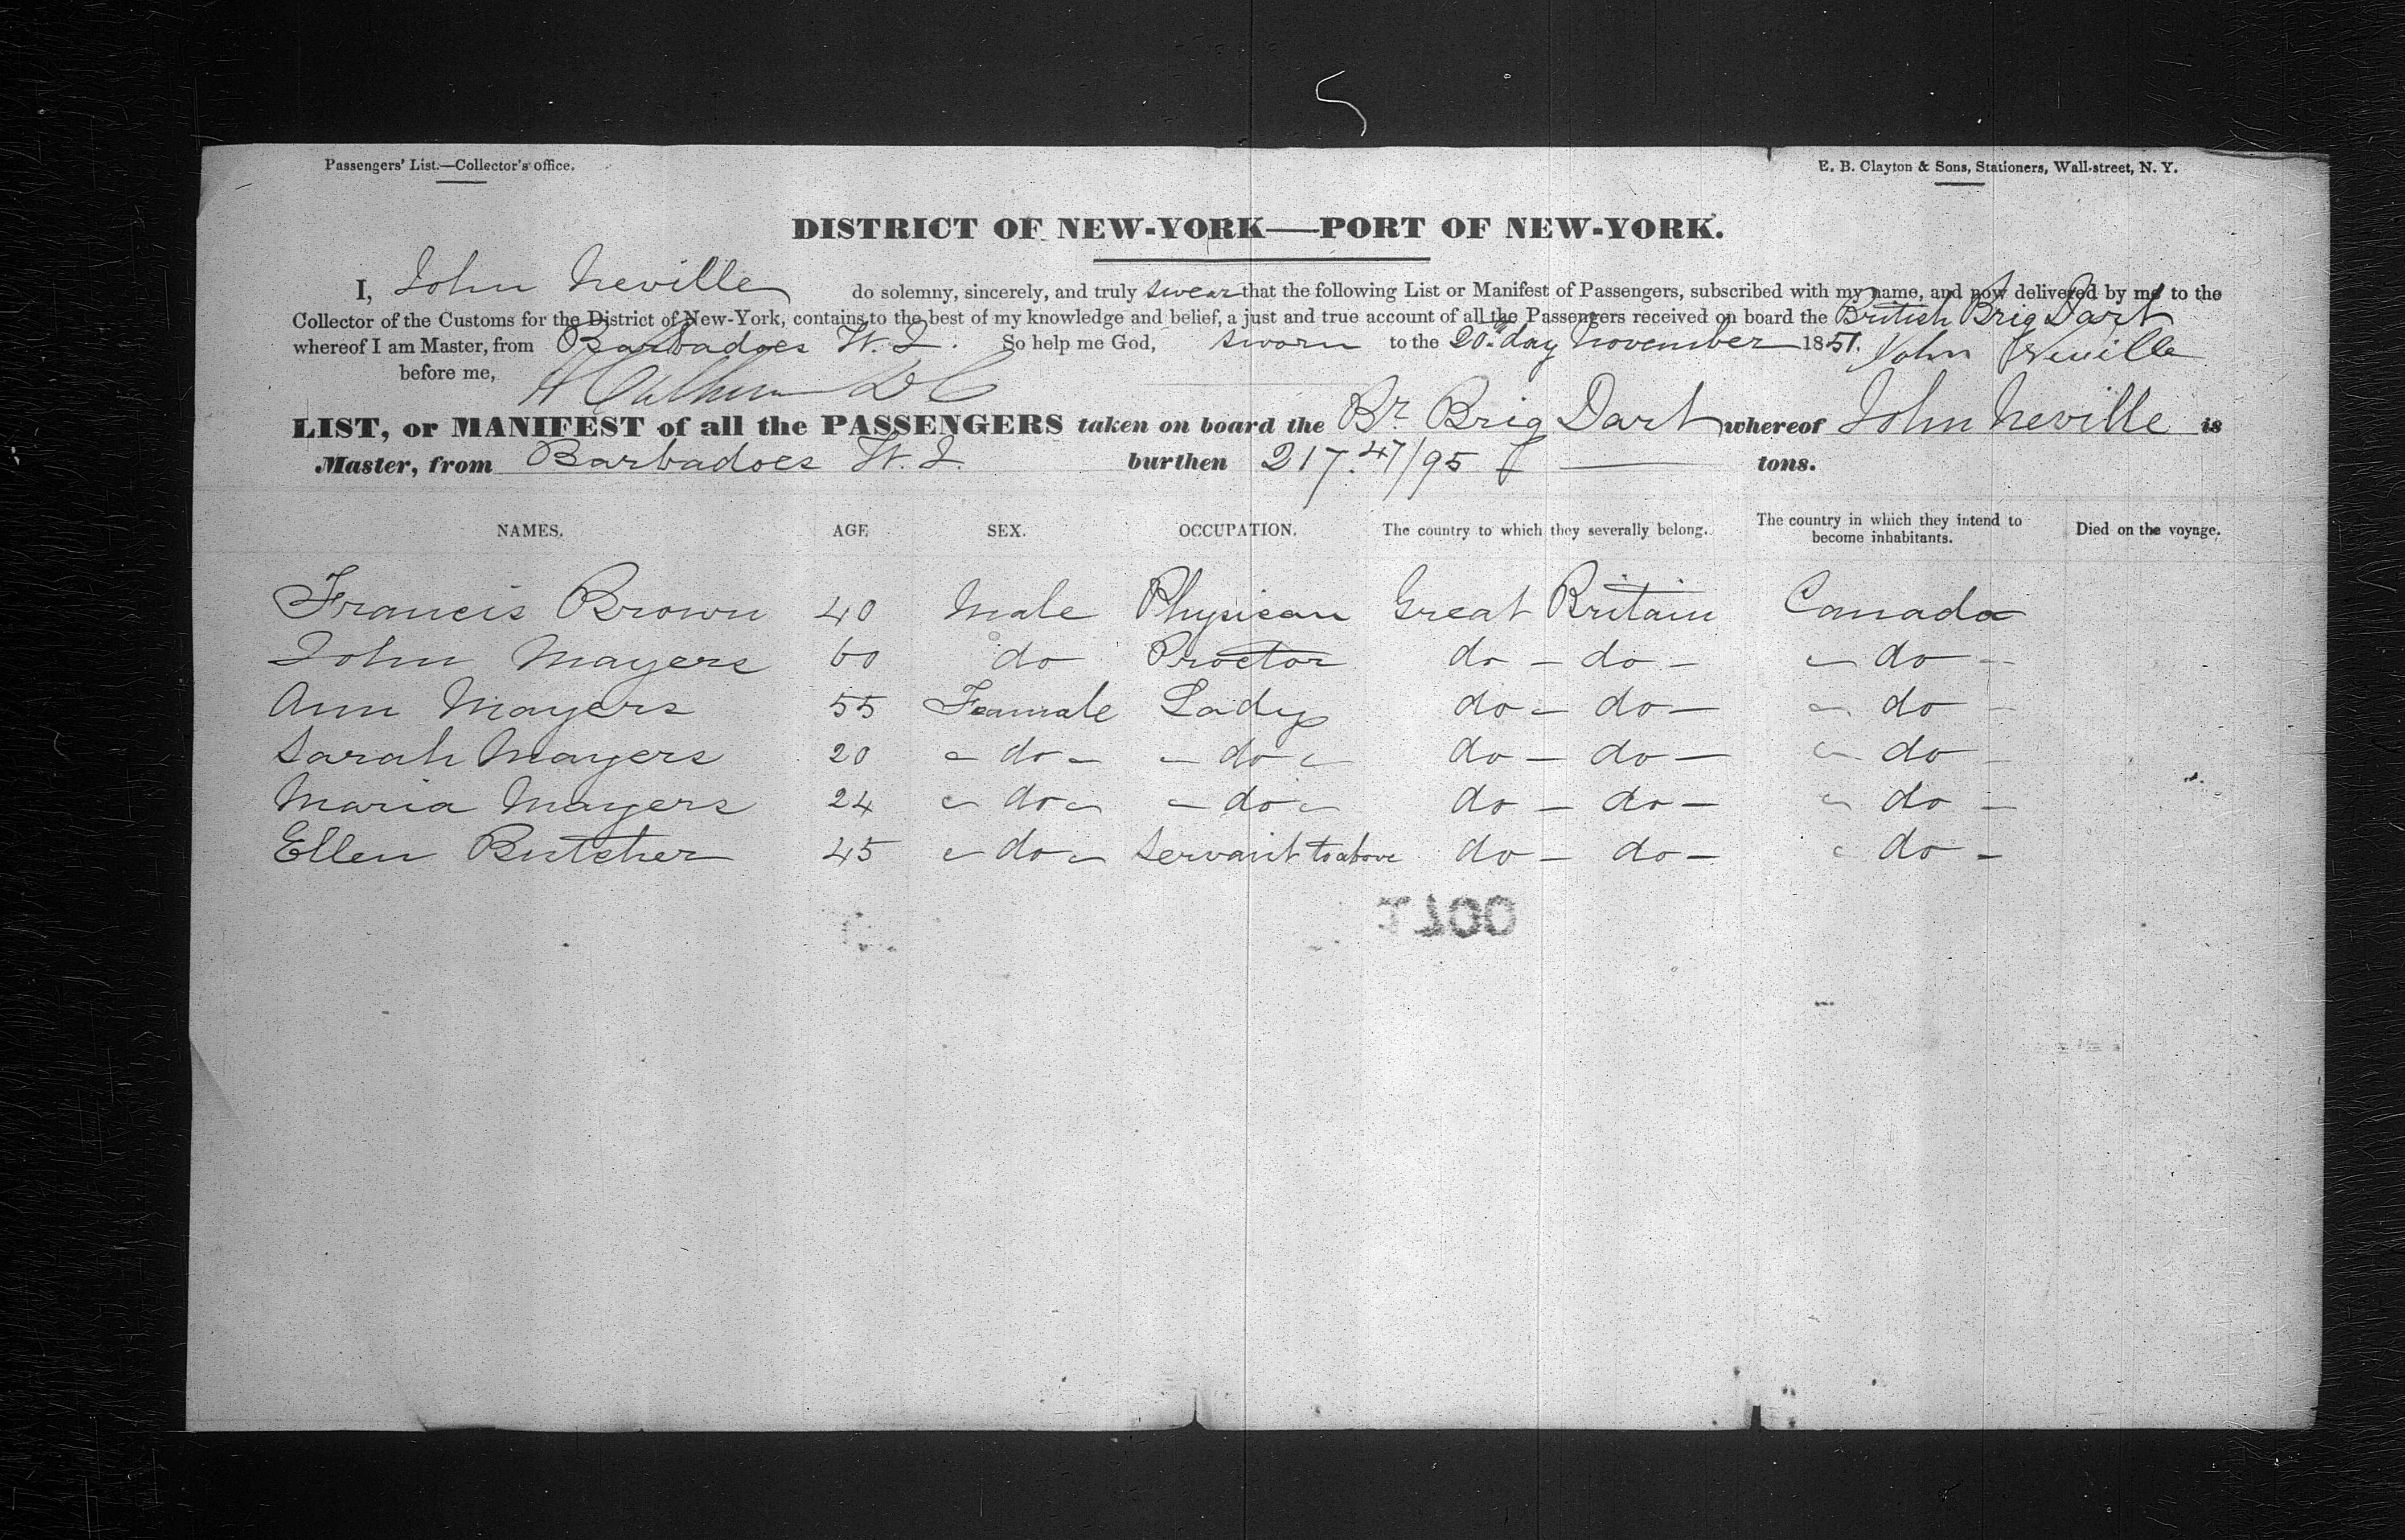 Passengers' List.—Collector's office.
E. B. Clayton & Sons, Stationers, Wall-street, N. Y.
DISTRICT OF NEW-YORK—PORT OF NEW-YORK.
I, John Neville do solemny, sincerely, and truly swear that the following List or Manifest of Passengers, subscribed with my name, and now delivered by me to the
Collector of the Customs for the District of New-York, contains, to the best of my knowledge and belief, a just and true account of all the Passengers received on board the British Brig Dart
whereof I am Master, from Barbadoes W. I. So help me God, sworn to the 20th day November 1851. John Neville
before me,
LIST, or MANIFEST of all the PASSENGERS taken on board the Br Brig Dart whereof John Neville is
Master, from Barbadoes W. I. burthen 217.47/95 tons.
NAMES. AGE SEX. OCCUPATION. The country to which they severally belong. The country in which they intend to become inhabitants. Died on the voyage.
Francis Brown 40 Male Physican Great Britain Canada
John Mayers 60 do Proctor do - do - - do -
Ann Mayers 55 Feamale Lady do - do - - do -
Sarah Mayers 20 - do - - do - do - do - - do -
Maria Mayers 24 - do - - do - do - do - - do -
Ellen Butcher 45 - do - Servant to above do - do - - do -